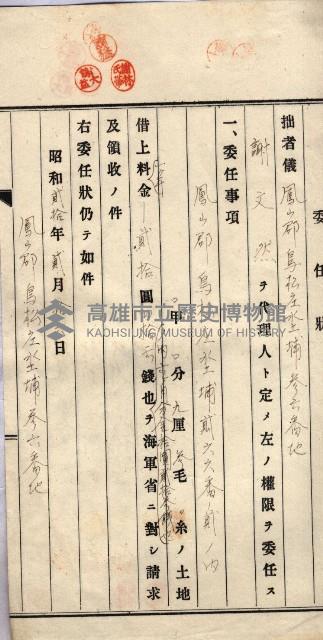 委任狀
拙者儀 鳳山郡鳥松庄水埔參六番地
謝文然ヲ代理人ト定メ左ノ權限ヲ委任ス
一、委任事項
鳳山郡鳥松庄水埔貳六六番ノ貳ノ內
甲 分九厘參毛 糸ノ土地
借上料金 貳拾圓 錢也ヲ海軍省ニ對シ請求
及領收ノ件
右委任狀仍テ如件
昭和貳拾年貳月 日
鳳山郡鳥松庄水埔參六番地
高雄市立歷史博物館
KAOHSIUNG MUSEUM OF HISTORY